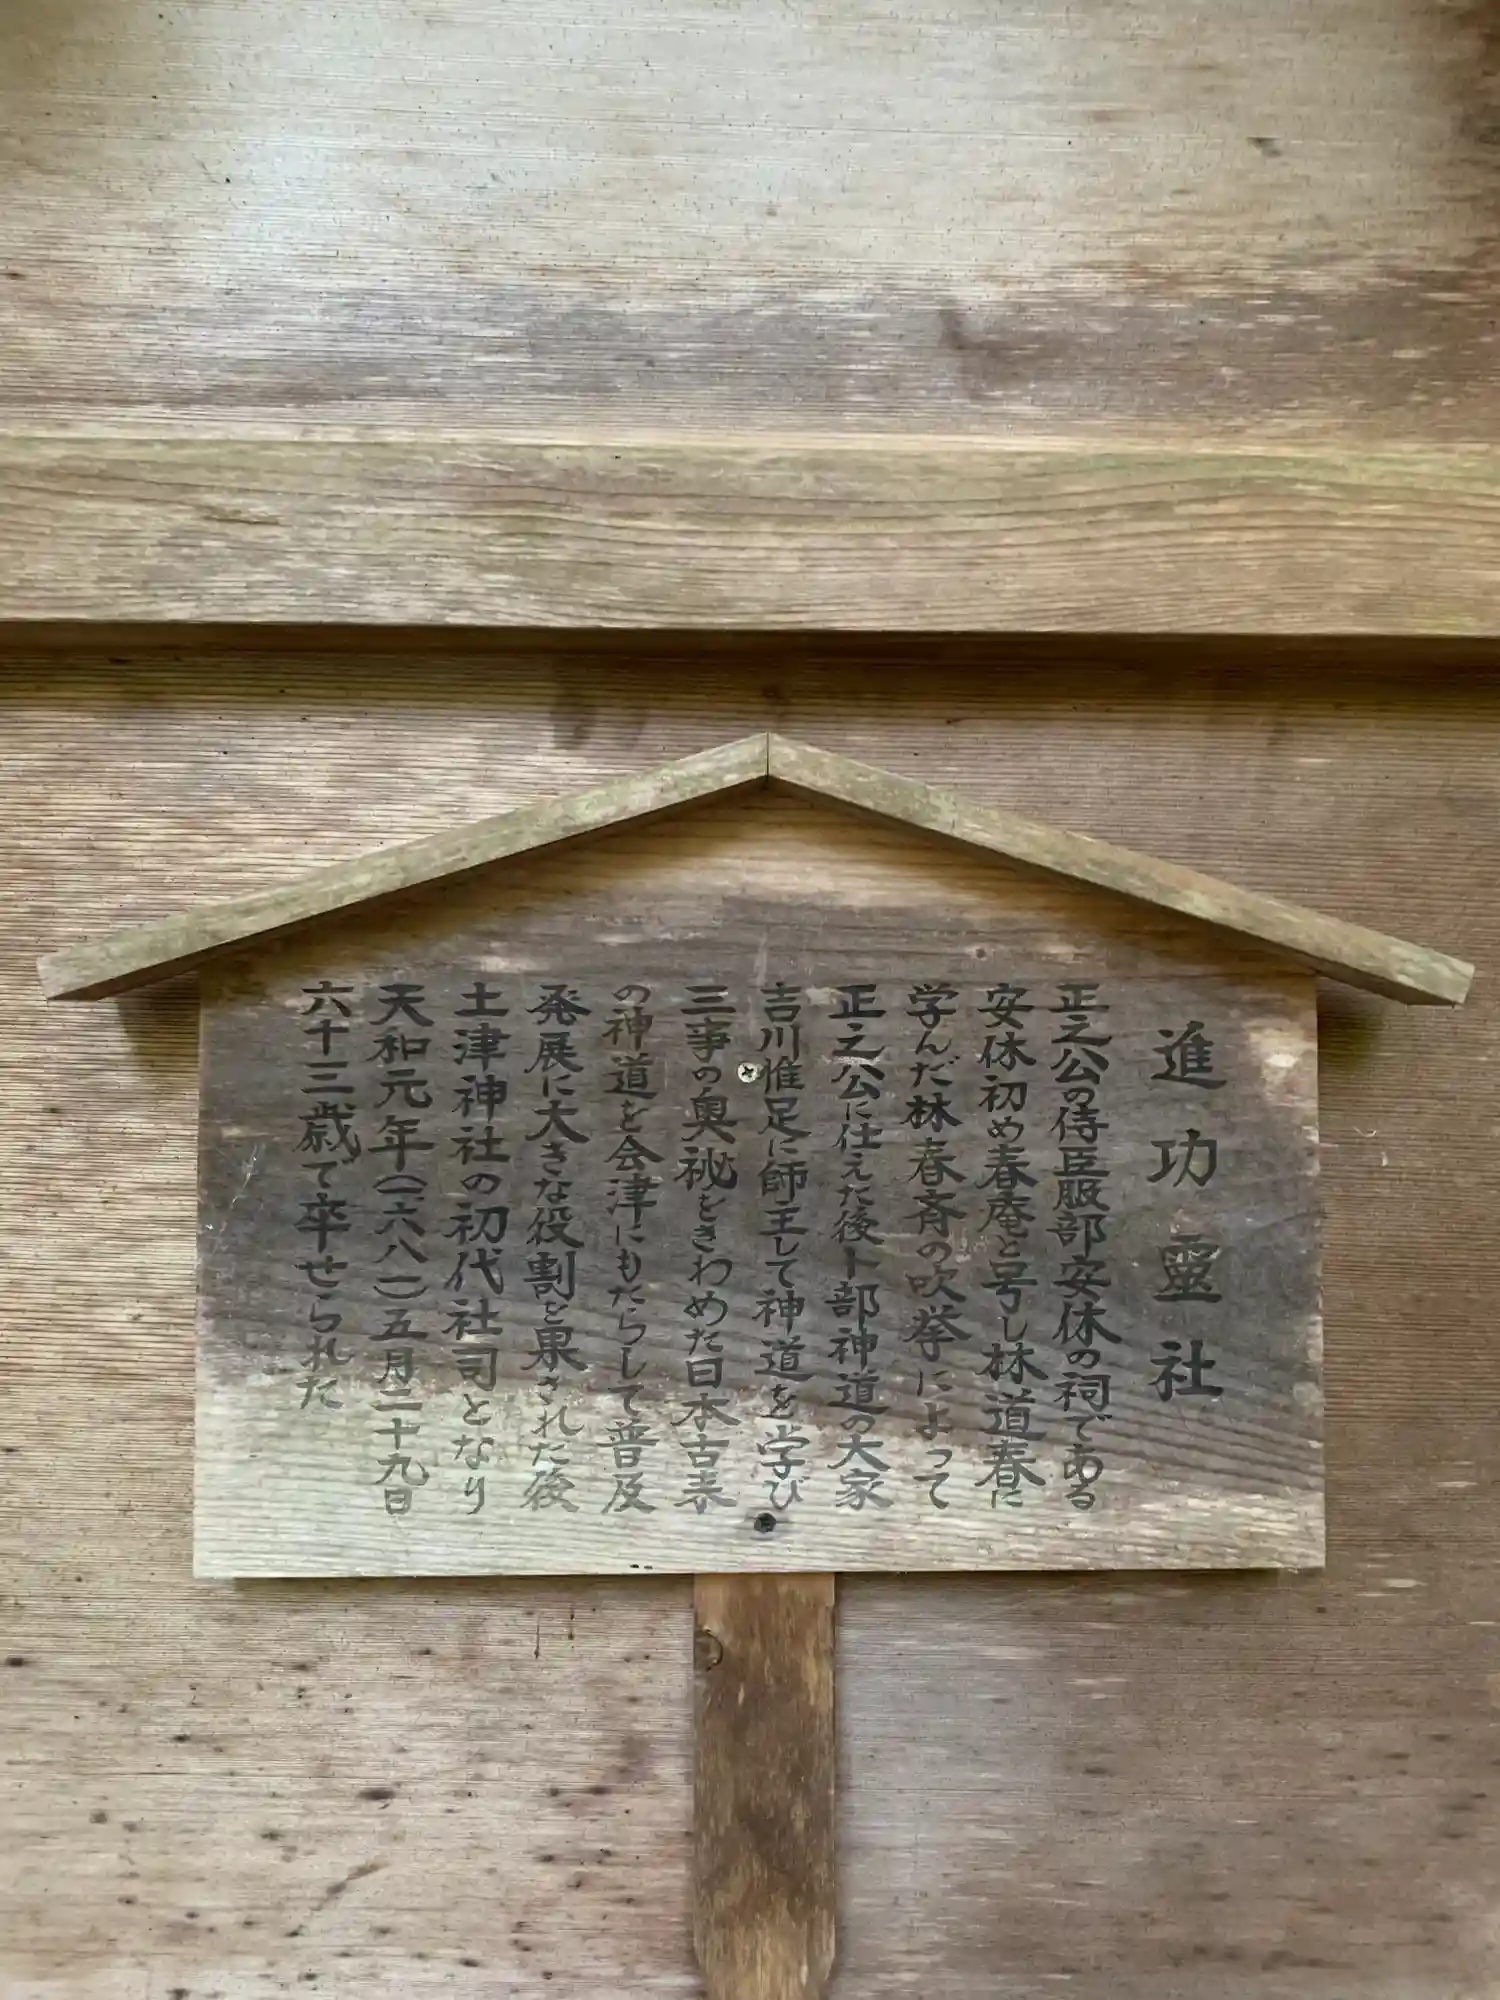 進功靈社
正之公の侍臣服部安休の祠である
安休初め春庵と号し林道春に
学んだ林春斉の吹挙によって
正之公に仕えた後卜部神道の大家
吉川惟足に師王して神道を学び
三事の奥祕をきわめた日本古来
の神道を会津にもたらして普及
発展に大きな役割を果された後
土津神社の初代社司となり
天和元年(一六八一)五月二十九日
六十三歳で卒せられた